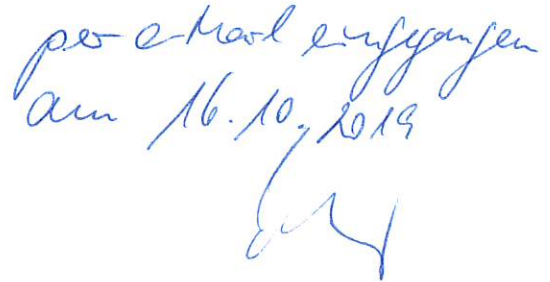 per e-Mail eingegangen
am 16.10.2019